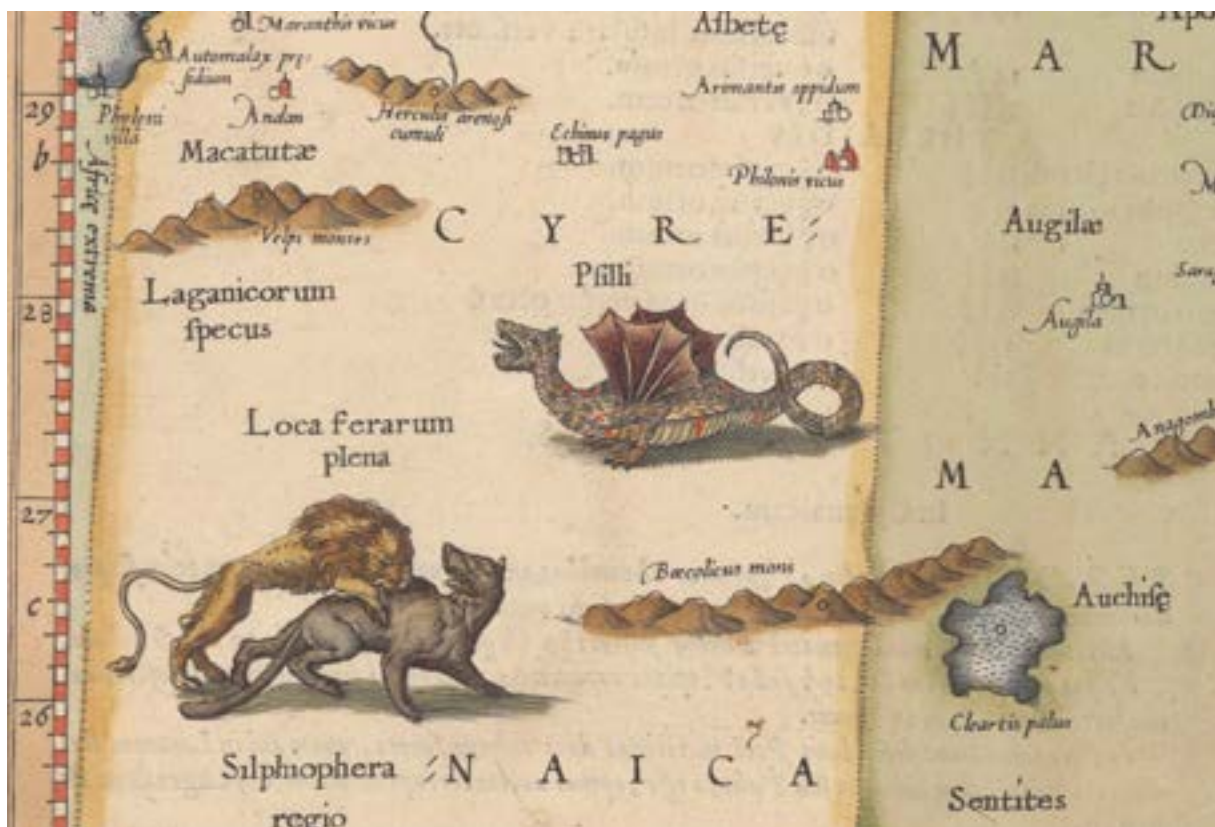 Maranthis vicus
Asbetę
Apo
M A R
Automalax prę
sidium
Arimantis oppidum
29
Phileni
villa
Andan
Herculis arenosi
cumuli
Echinus pagus
b
Macatutæ
Philonis vicus
Africę extrema
Velpi montes
C Y R E⸗
Augilæ
Psilli
Laganicorum
specus
28
Augila
Loca ferarum
plena
M A
27
Bæcolicus mons
c
Auchisę
26
Cleartis palus
7
Silphiophera
regio
⸗N A I C A
Sentites